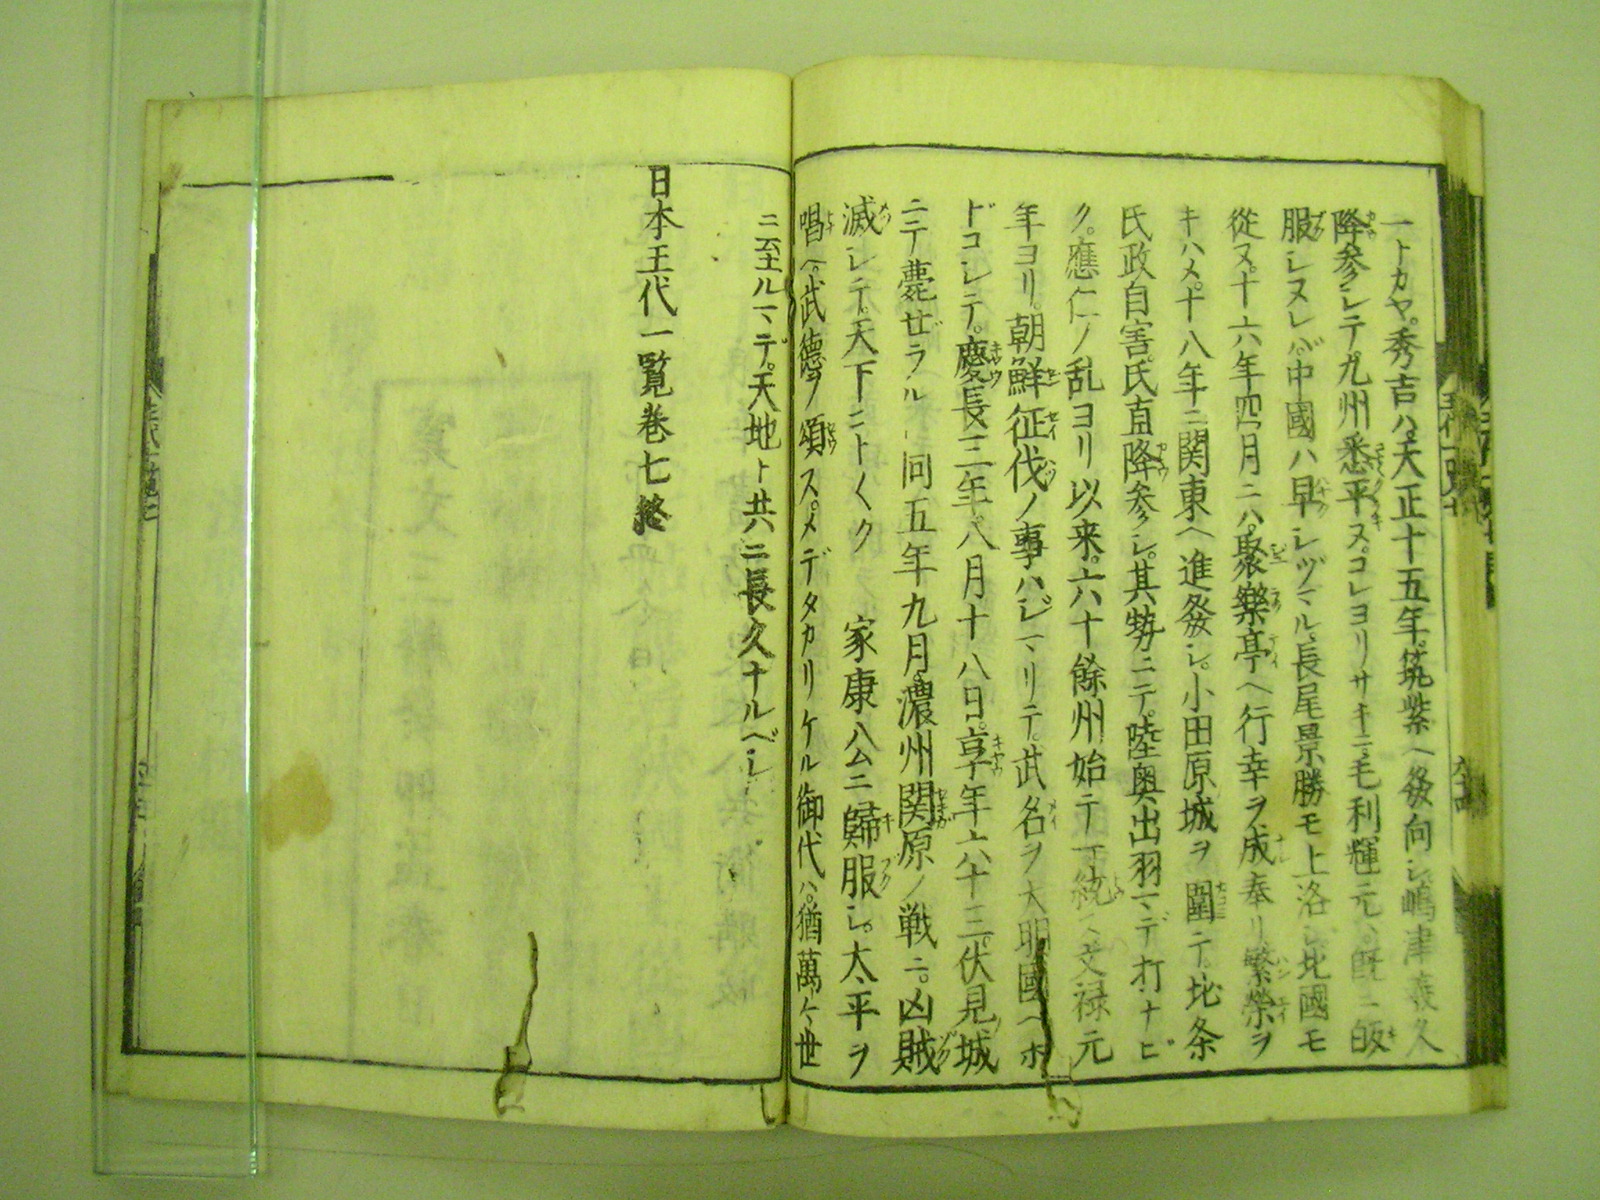 一トカヤ。秀吉ハ天正十五年。筑紫ヘ發向シ嶋津義久
降参シテ九州悉平ヌ。コレヨリサキニ毛利輝元ハ。既ニ皈
服シヌレバ。中國ハ早シヅマル。長尾景勝モ上洛シ。北國モ
從ヌ。十六年四月ニハ。聚樂亭ヘ行幸ヲ成奉リ繁榮ヲ
キハメ。十八年ニ関東ヘ進發シ。小田原城ヲ圍テ。北条
氏政自害氏直降参シ。其勢ニテ。陸奥出羽マデ打ナビ
ク。應仁ノ乱ヨリ以来。六十餘州始テ一統ス文禄元
年ヨリ。朝鮮征伐ノ事ハジマリテ。武名ヲ大明國ヘホ
ドコシテ。慶長三年。八月十八日。享年六十三。伏見城
ニテ薨ゼラル 同五年九月。濃州関原ノ戦ニ。凶賊
滅シテ。天下コト〲ク 家康公ニ歸服シ。太平ヲ
唱ヘ。武徳ヲ頌ス。メデタカリケル御代ハ。猶萬々世
ニ至ルマデ。天地ト共ニ長久ナルベシ
日本王代一覧巻七終